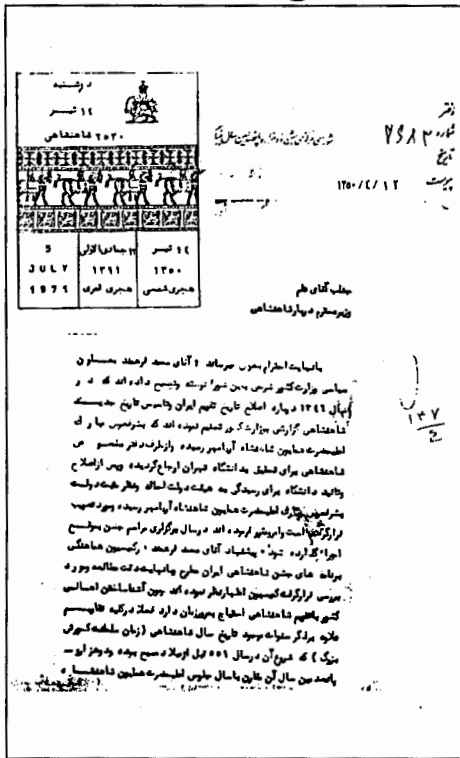 دوشنبه
۱۴ تیر
۲۵۳۰ شاهنشاهی
۱۴ تیر
۱۳۵۰
هجری شمسی
۱۲ جمادی‌الاولی
۱۳۹۱
هجری قمری
5
JULY
1971
دفتر
شماره ۷۶۸۲
تاریخ
۱۳۵۰/۴/۱۲
پیوست
جناب آقای علم
وزیر محترم دربار شاهنشاهی
با نهایت احترام بعرض میرساند : آقای محمد ارهمند معاون
سیاسی وزارت کشور شرحی باین شورا نوشته و توضیح داده‌اند که در
سال ۱۳۴۶ درباره اصلاح تاریخ تقویم ایران و تاسیس تاریخ جدید
شاهنشاهی گزارشی بوزارت کشور تسلیم نموده‌اند که بشرفعرض مبارک
اعلیحضرت همایون شاهنشاه آریامهر رسیده و از طرف دفتر مخصوص
شاهنشاهی برای تحقیق بدانشگاه تهران ارجاع گردیده و پس از اصلاح
و تائید دانشگاه برای رسیدگی به هیئت دولت احاله و نظر هیئت دولت
بشرفعرض مبارک اعلیحضرت همایون شاهنشاه آریامهر رسیده مورد تصویب
قرار گرفته است و امر و مقرر فرموده‌اند در سال برگزاری مراسم جشن بموقع
اجرا گذارده شود. پیشنهاد آقای محمد ارهمند در کمیسیون هماهنگی
برنامه های جشن شاهنشاهی ایران مطرح و با نهایت دقت مطالعه و مورد
بررسی قرار گرفت کمیسیون اظهار نظر نموده‌اند چون آشنا ساختن اهالی
کشور با تقویم شاهنشاهی احتیاج بمرور زمان دارد فعلا در کلیه تقاویم
علاوه بر ذکر سنوات مرسوم تاریخ سال شاهنشاهی (زمان سلطنت کورش
بزرگ) که شروع آن در سال ۵۵۹ قبل از میلاد مسیح بوده و دو هزار و
پانصدمین سال آن مقارن با سال جلوس اعلیحضرت همایون شاهنشاه
۱۳۷